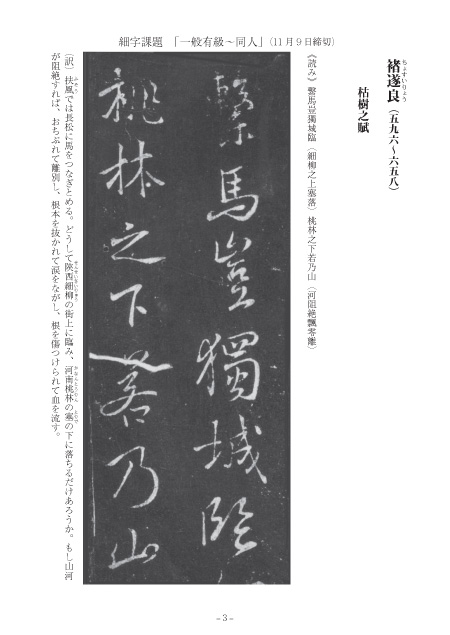 細字課題　「一般有級～同人」（11月9日締切）
褚遂良（五九六～六五八）
ちょすいりょう
枯樹之賦
《読み》繋馬豈獨城臨（細柳之上塞落）桃林之下若乃山（河阻絶飄零離）
繋馬豈獨城臨
桃林之下若乃山
（訳）扶風では長松に馬をつなぎとめる。どうして陝西細柳の街上に臨み、河南桃林の塞の下に落ちるだけあろうか。もし山河
が阻絶すれば、おちぶれて離別し、根本を抜かれて涙をながし、根を傷つけられて血を流す。
－3－